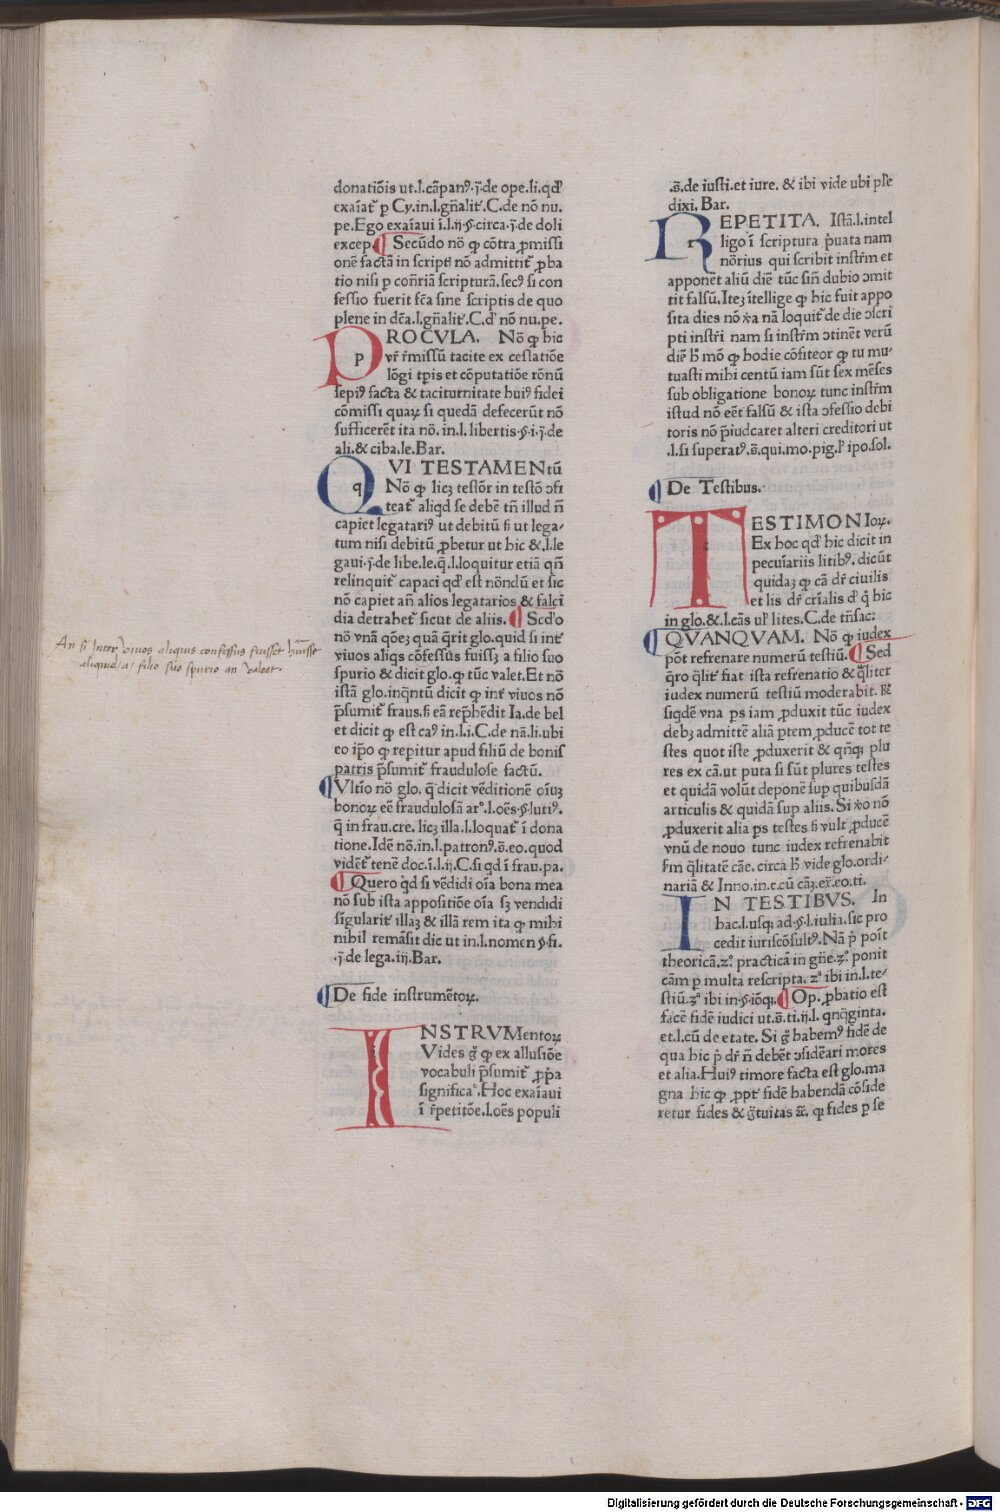 donatiōis ut.l.cãpanꝰ.j̄.de ope.li.qđ
exaīat᷑ p Cy.in.l.gñalit᷑.C.de nō nu.
pe.Ego exaīaui ī.l.ij.§.circa.j̄.de doli
excep. ¶ Secūdo nō ꝙ cōtra ꝓmissi
onē factā in script᷑ nō admittit᷑ ꝓba
tio nisi p con̄riā scripturā.secꝰ si con
fessio fuerit fc̄a sine scriptis de quo
plene in dc̄a.l.gñalit᷑.C.đ nō nu.pe.
PROCVLA. Nō ꝙ hic
vr̄ r̄missū tacite ex cessatiōe
lōgi tꝑis et cōputatiōe rōnū
sepiꝰ facta & taciturnitate huiꝰ fidei
cōmissi quaꝝ si quedā defecerūt nō
sufficerēt ita nō. in.l. libertis.§.i.j̄.de
ali.& ciba.le.Bar.
QVI TESTAMENtū
Nō ꝙ licꝫ testōr in testō ↄfi
teat᷑ aliqd se debē tñ illud ñ
capiet legatariꝰ ut debitū s̄ ut lega⸗
tum nisi debitū ꝓbetur ut hic &.l.le
gaui.j̄.de libe.le.q̄.l.loquitur etiā qñ
relinquit᷑ capaci qđ est nōndū et sic
nō capiet añ alios legatarios & falci
dia detrahet᷑ sicut de aliis. ¶ Scđo
nō vnā qōeꝫ quā q̄rit glo.quid si int᷑
viuos aliqs cōfessus fuissꝫ a filio suo
spurio & dicit glo.ꝙ tūc valet.Et nō
istā glo.inqñtū dicit ꝙ int᷑ viuos nō
p̄sumit᷑ fraus.s̄ eā rep̄hēdit Ia.de bel
et dicit ꝙ est caꝰ in.l.i.C.de nā.li.ubi
eo ip̄o ꝙ reꝑitur apud filiū de bonis
patris p̄sumit᷑ fraudulose factū.
¶ Vltīo nō glo. q̄ dicit vēditionē oīuꝫ
bonoꝝ eē fraudulosā arº.l.oēs.§.lutiꝰ.
q̄ in frau.cre. licꝫ illa.l.loquat᷑ ī dona
tione.Idē nō.in.l.patronꝰ.s̄.eo.quod
vidēt᷑ tenē doc.ī.l.ij.C.si qd ī frau.pa.
¶ Quero qd si vēdidi oīa bona mea
nō sub ista appositiōe oīa sꝫ vendidi
sīgularit᷑ illaꝫ & illā rem ita ꝙ mihi
nihil remāsit dic ut in.l.nomen §.fi.
.j̄.de lega.iij.Bar.
¶ De fide instrumētoꝝ.
INSTRVMentoꝝ
Vides g̊ ꝙ ex allusiōe
vocabuli p̄sumit᷑ ꝓp̄a
significaº.Hoc exaīaui
ī r̄petitōe.l.oēs populi
.s̄.de iusti.et iure. & ibi vide ubi ple
dixi. Bar.
REPETITA. Istā.l.intel
ligo ī scriptura p̄uata nam
nōrius qui scribit instr̄m et
apponēt aliū diē tūc siñ dubio ↄmit
tit falsū.Iteꝫ ītellige ꝙ hic fuit appo
sita dies nō v̊a nā loquit᷑ de die ↄscri
pti instr̄i nam si instr̄m ↄtinēt verū
diē h̄ mō ꝙ hodie cōfiteor ꝙ tu mu⸗
tuasti mihi centū iam sūt sex mēses
sub obligatione bonoꝝ tunc instr̄m
istud nō eēt falsū & ista ↄfessio debi
toris nō p̄iudcaret alteri creditori ut
.l.si superatꝰ.s̄.qui.mo.pig.l᷑ ipo.sol.
¶ De Testibus.
TESTIMONIoꝝ.
Ex hoc qđ hic dicit in
pecuīariis litibꝰ. dicūt
quidaꝫ ꝙ cā dr̄ ciuilis
et lis dr̄ crīalis đ q̄ hic
in glo.&.l.cās ul᷑ lites.C.de tr̄isac:
¶ QVANQVAM. Nō ꝙ iudex
pōt refrenare numerū testiū. ¶ Sed
q̄ro q̄lit᷑ fiat ista refrenatio & q̄liter
iudex numerū testiū moderabit. R̄
siqdē vna ps iam ꝓduxit tūc iudex
debꝫ admittē aliā ꝑtem ꝓducē tot te
stes quot iste ꝓduxerit & qñqꝫ plu
res ex cā.ut puta si sūt plures testes
et quidā volūt deponē sup quibusdā
articulis & quidā sup aliis. Si v̊o nō
ꝓduxerit alia ps testes s̄ vult ꝓducē
vnū de nouo tunc iudex refrenabit
s̄m q̄litatē cāe. circa h̄ vide glo.ordi⸗
nariā & Inno.in.c.cū cāꝫ.ex̄.eo.ti.
IN TESTIBVS. In
hac.l.usqꝫ ad.§.l.iulia.sic pro
cedit iuriscōsultꝰ.Nā p̄ poīt
theoricā.zº. practicā in gñe.zº. ponit
cām p multa rescripta. zª ibi in.l.te⸗
stiū.zª ibi in.§.iōqꝫ. ¶ Op. ꝓbatio est
facē fidē iudici ut.s̄.ti.ij.l. qnq̄ginta.
et.l.cū de etate. Si g̊ habemꝰ fidē de
qua hic p̄ dr̄ ñ debēt ↄsidēari mores
et alia.Huiꝰ timore facta est glo.ma
gna hic ꝙ ꝓpt᷑ fidē habendā cōside
retur fides & g̊tuitas &c̄. ꝙ fides p se
An si inter viuos aliquis confessus fuisset h̄uisse
aliquid a filio suo spurio an valeat.
Digitalisierung gefördert durch die Deutsche Forschungsgemeinschaft - DFG